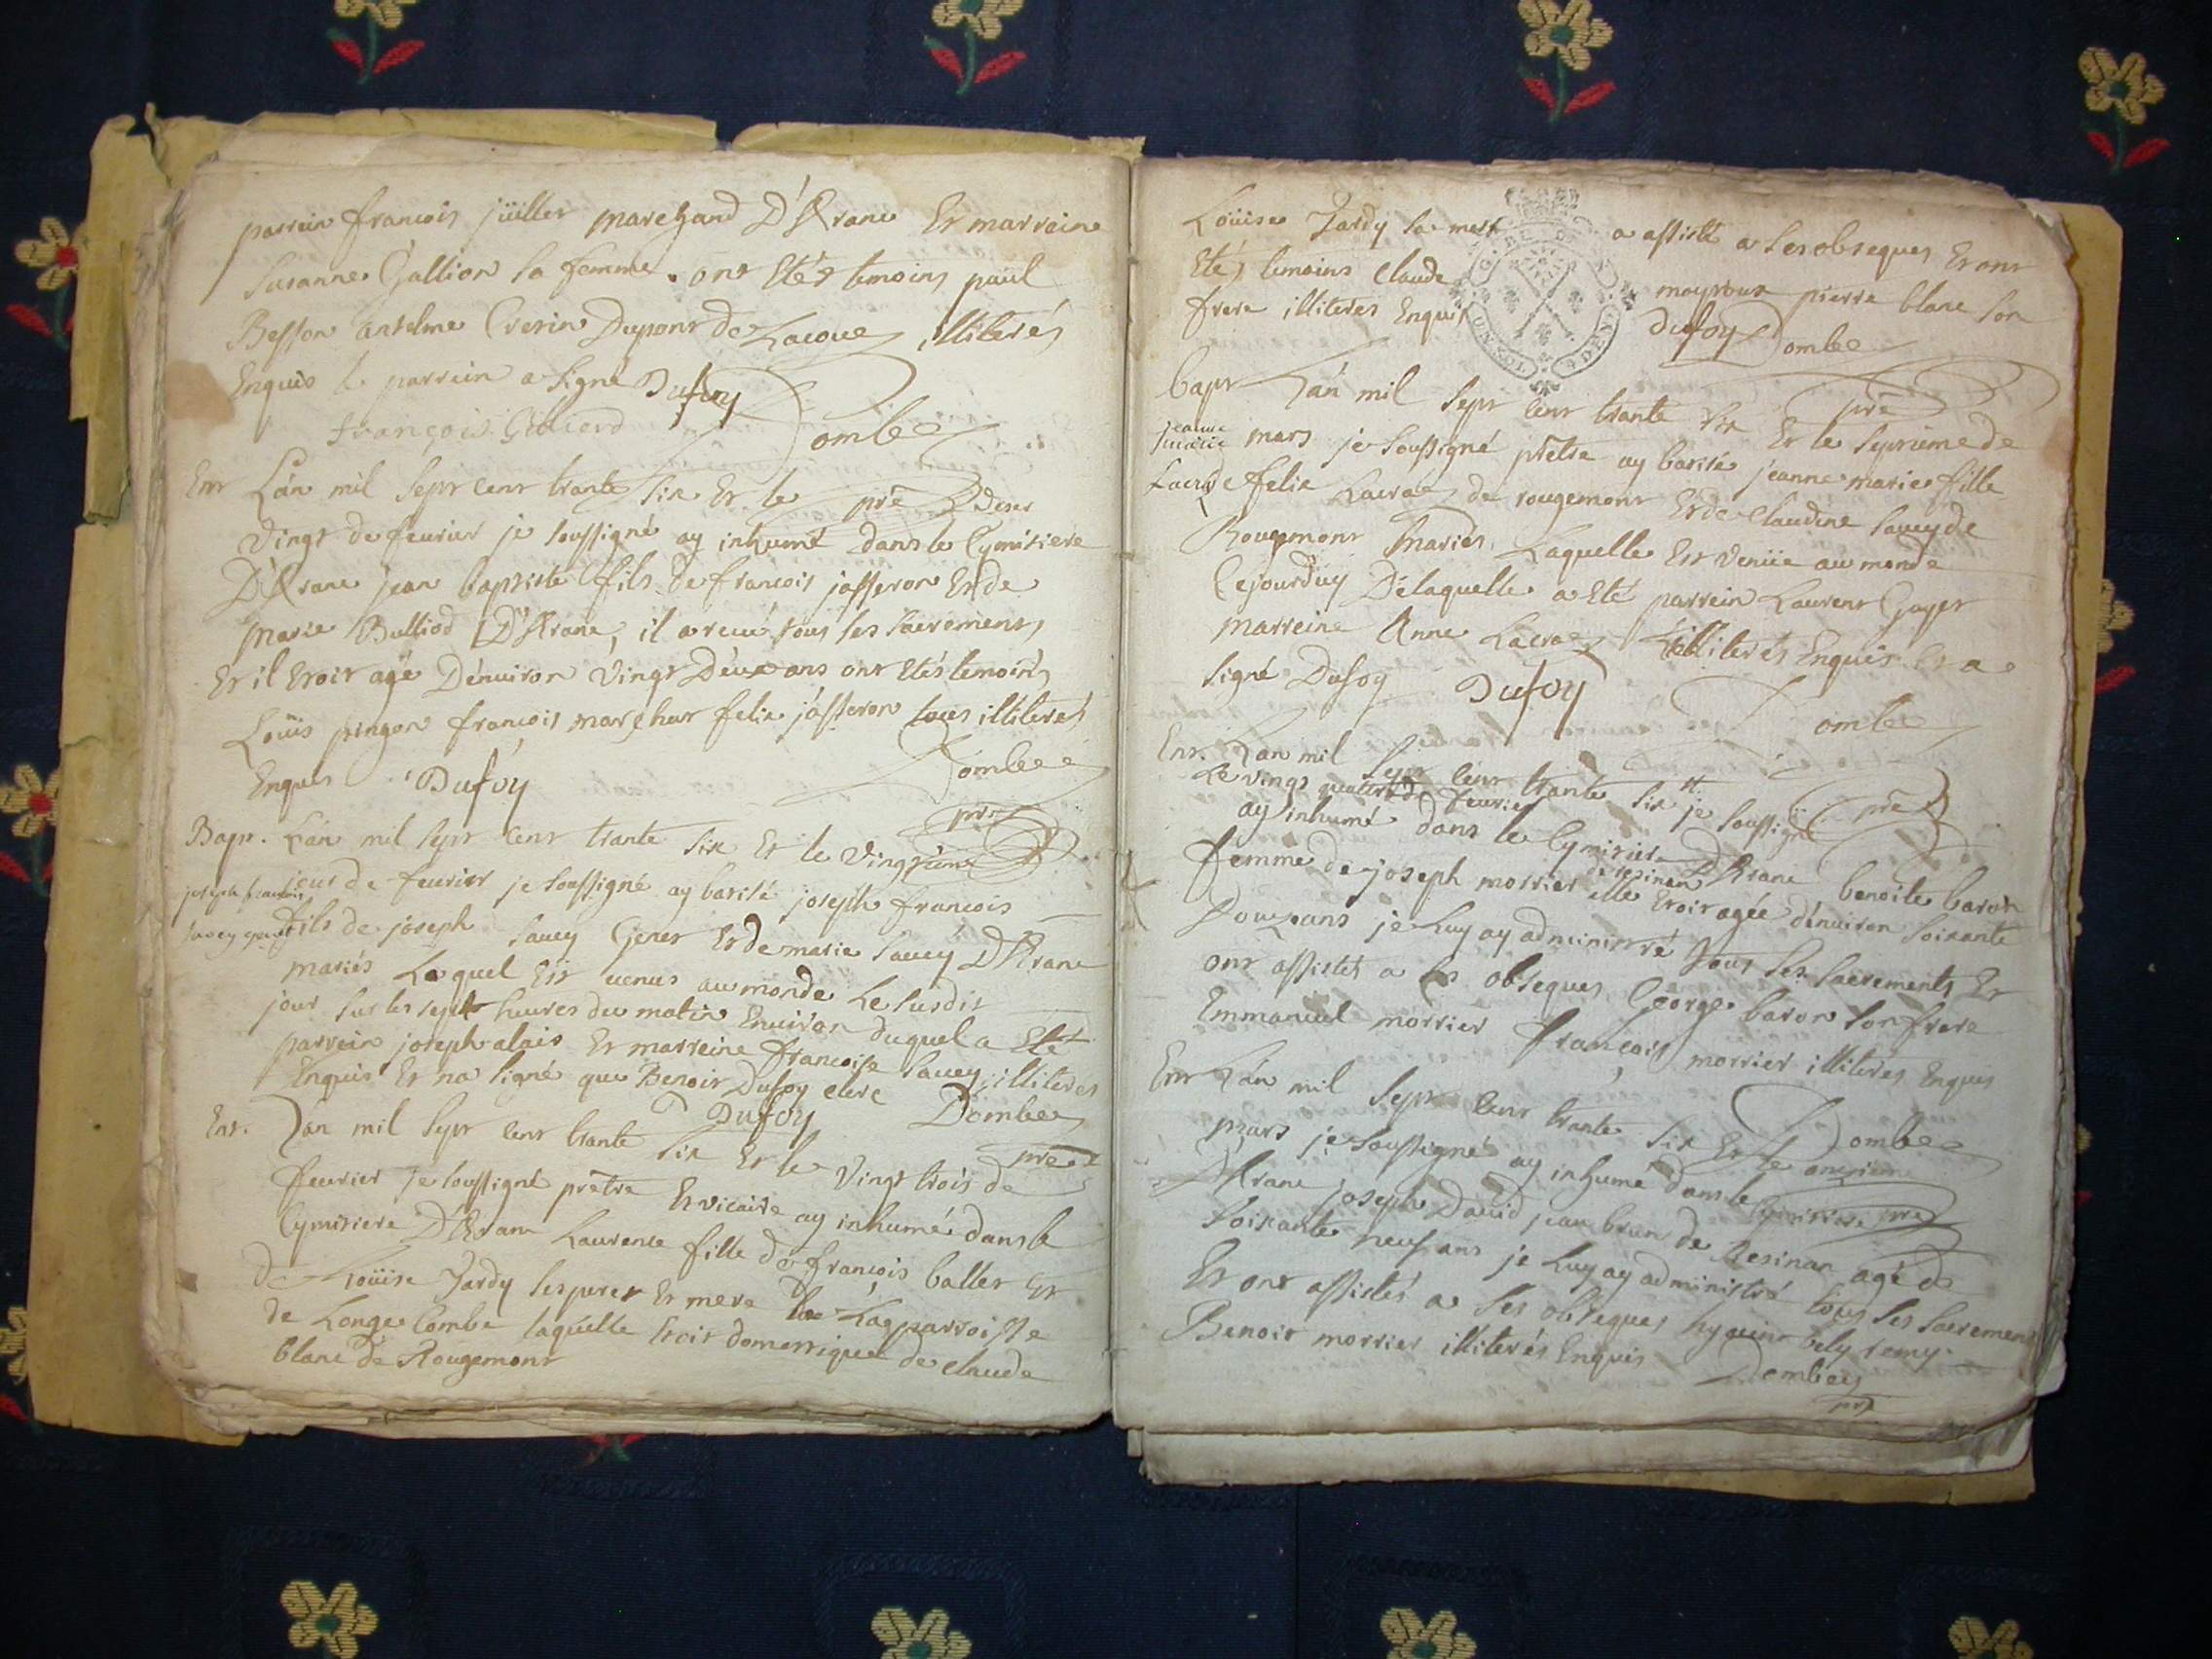 parrein francois jüiller marchand D'Arane Et marraine
Susanne Gallion sa femme. ont Etés temoins paul
Besson antelme Dupont de Lacoue illiterés
Enquis le parrein a signé Dufoy
françois Dombe
Ent L'an mil sept cent trante six Et le pre
vingt de feurier je soussigné ay inhumé dans le Cymitiere
D'Arane jean baptiste fils de francois jasseron Et de
marie Bulliod D'Arane, il a recu tous ses sacrements
Et il Etoit agé D'enuiron vingt Deux ans ont Etés temoins
Loüis pingon francois felix jasseron tous illiterés
Enquis Dufoy Dombe
pre
Bapt. L'an mil sept cent trante six Et le vingtieme
joseph francois
jour de feurier je soussigné ay batisé joseph francois
sauey
fils de joseph sauey Et de marie sauey D'Arane
mariés Lequel Est uenus au monde Le susdit
jour sur les sept heures du matin Enuiron duquel a Eté
parrein joseph alais Et marreine francoise sauey illiteres
Enquis Et na signé que Benoit Dufoy clerc
Dufoy Dombe
Ent. L'an mil sept cent trante six Et le vingt trois de
pre
feurier Je soussigné prêtre Et vicaire ay inhumé dans le
Cymitiere D'Arane Laurence fille de francois baller Et
de Loüise Jardy ses peres Et mere de La parroisse
de Longe Combe laquelle Etoit domestique de claude
blanc de Rougemont
Loüise Jardy sa mere a assisté a ses obseques Et ont
Etés temoins claude pierre blanc son
frere illiteres Enquis Dufoy Dombe
pre
bapt L'an mil sept cent trante six Et le septieme de
jeanne
marie
Lacra
mars je soussigné prêtre ay batisé jeanne marie fille
de felix Lacra de rougemont Et de claudine sauey de
Rougemont mariés, Laquelle Est venüe au monde
Cejourduy De laquelle a Eté parrein Laurent
marreine Anne Lacra illiterés Enquis Et a
signé Dufoy Dufoy
Dombe
pre
Ent. L'an mil sept cent trante six je soussigné
Le vingt quatre de feurier
ay inhumé dans le Cymitiere D'Arane benoite baron
femme de joseph morrier de resinan elle Etoit agée d'enuiron soixante
Douze ans je Luy ay administré tous ses sacrements Et
ont assistés a ses obseques George baron son frere
Emmanuel morrier françois morrier illiterés Enquis
Dombe
Ent L'an mil sept cent trante six Et le onzieme
pre
mars je soussigné ay inhumé dans le Cymitiere
D'Arane joseph Dauid jean brun de Resinan agé de
soixante neuf ans je Luy ay administré tous ses sacrement
Et ont assistés a ses obseques bely remy
Benoit morrier illiterés Enquis Dombe
pre